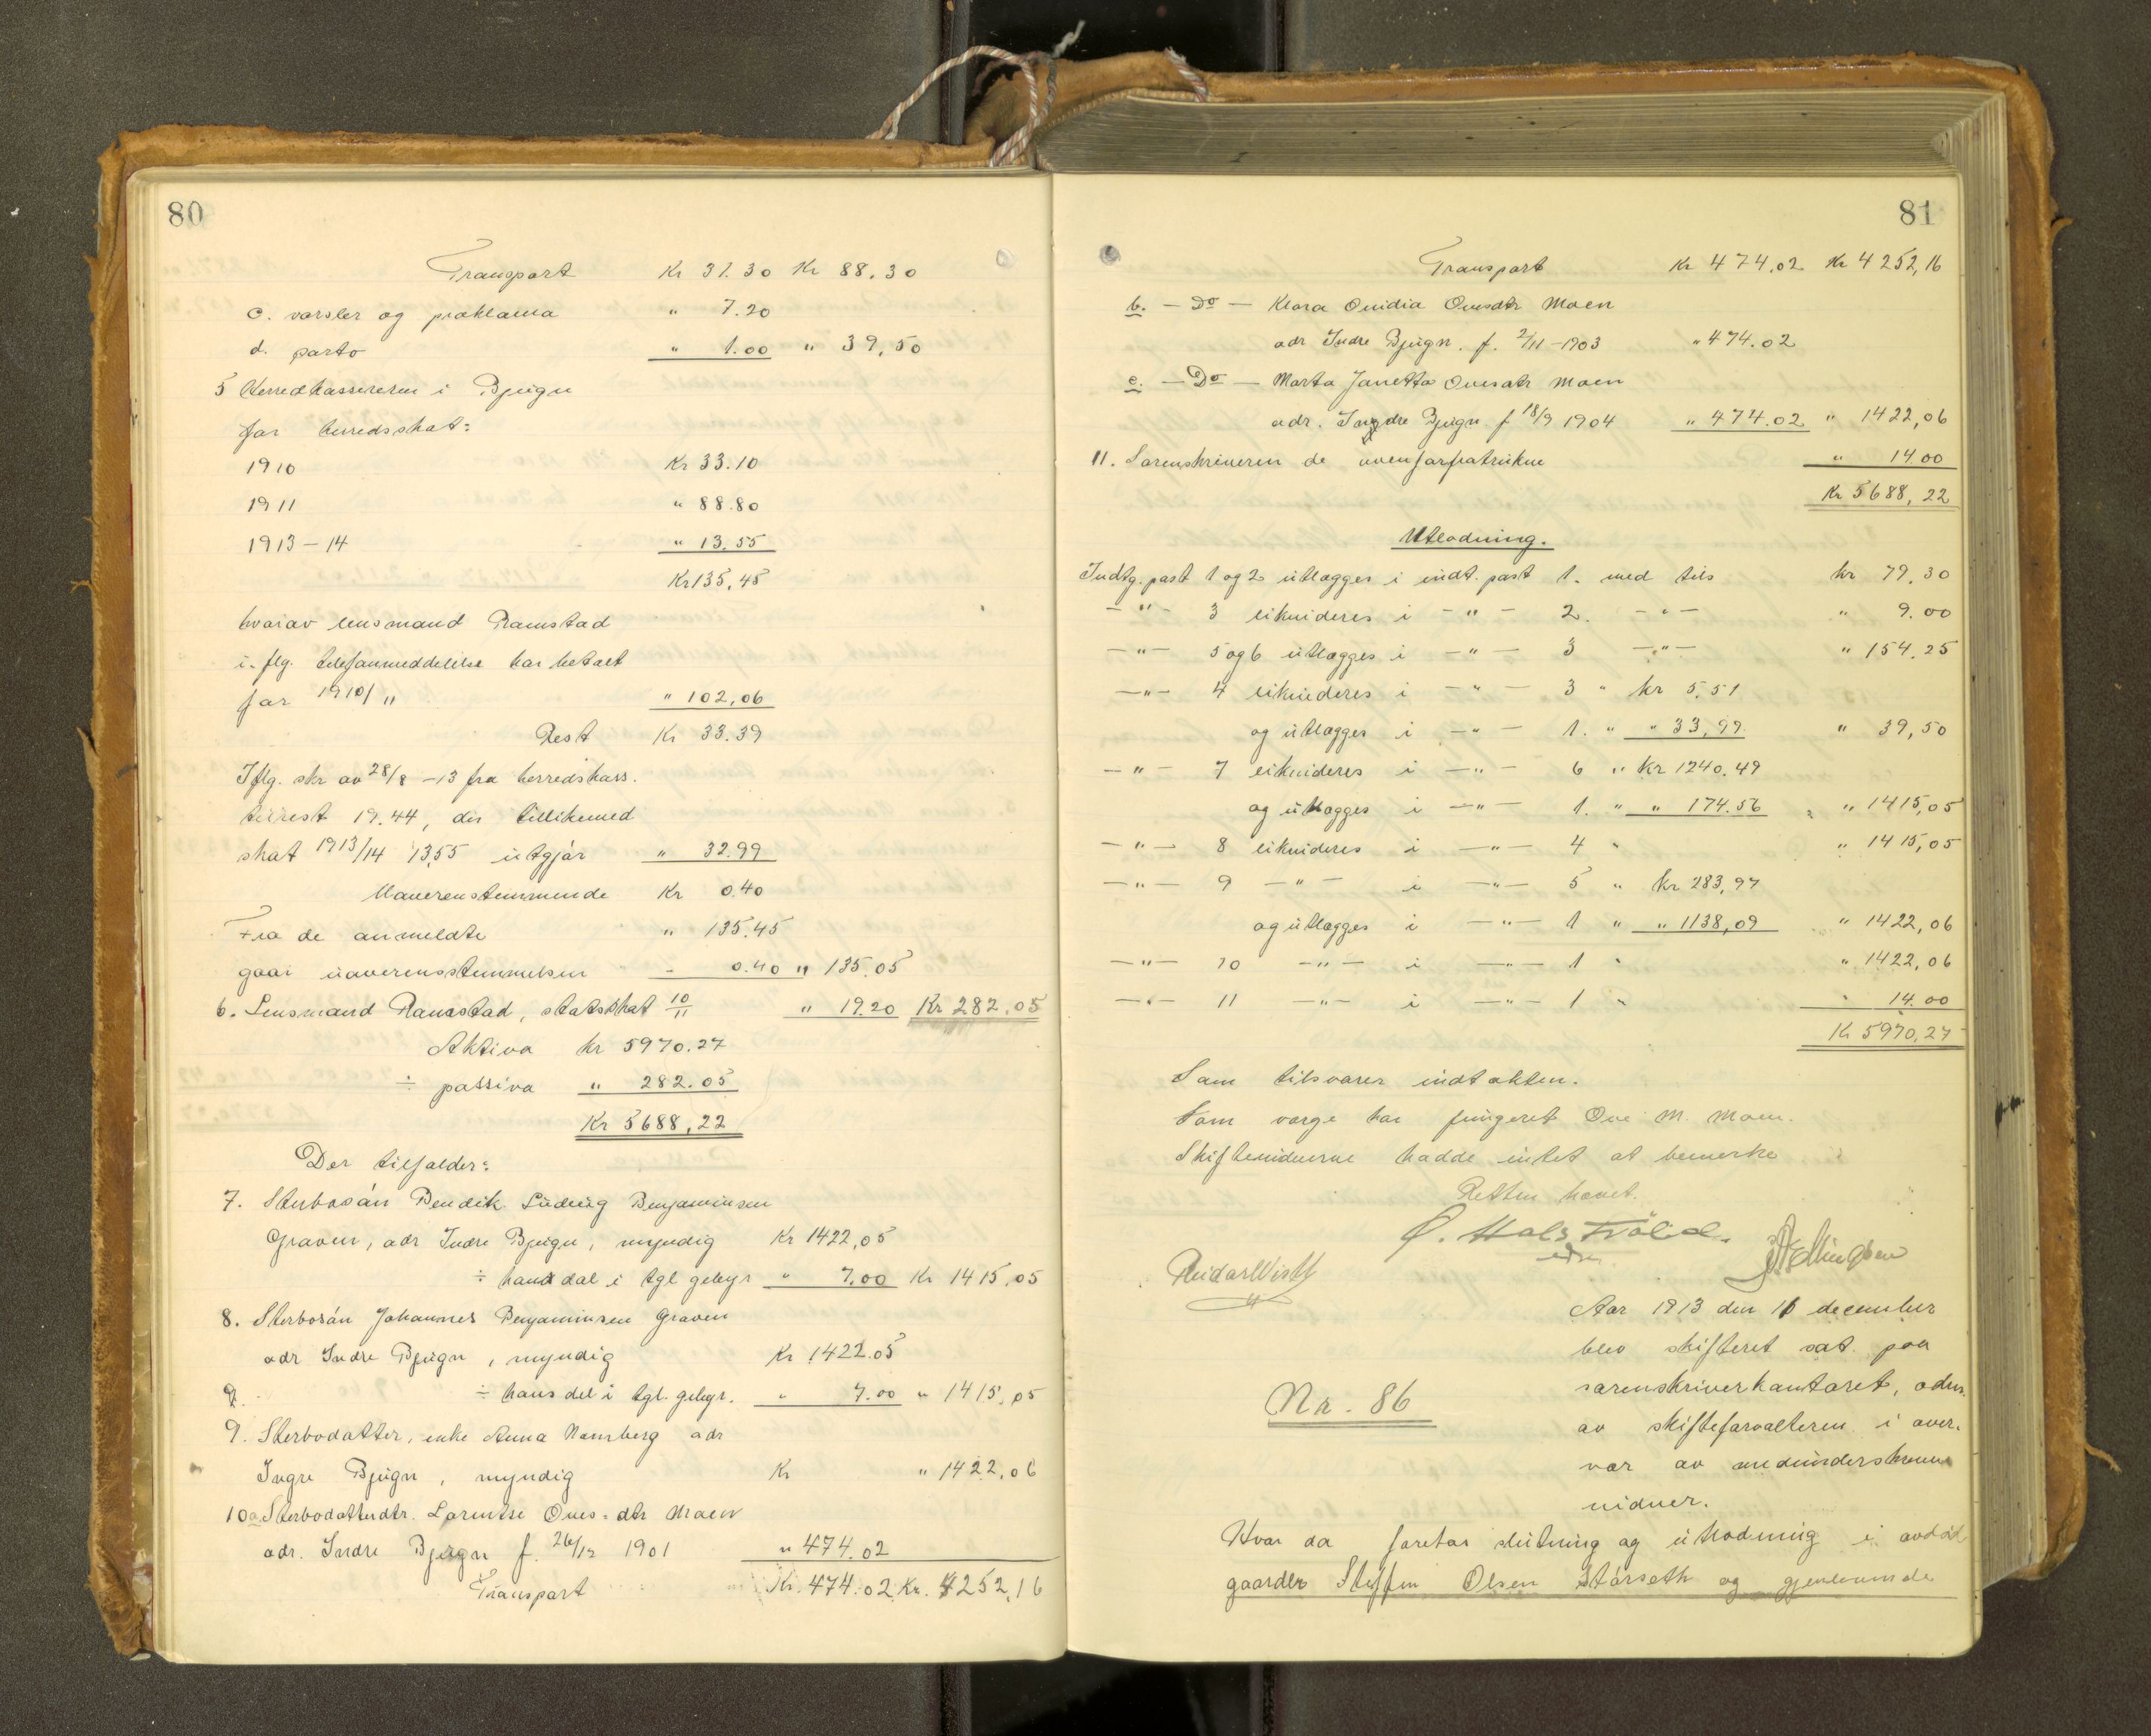 80
Transport Kr 31.30 Kr 88.30
c. varsler og proklama " 7.20
d. porto " 1.00 " 39,50
5 Herredskassereren i Bjugn
for herredsskat:
1910 Kr 33.10
1911 " 88.80
1913-14 " 13.55
Kr 135,45
hvorav lensmand Ramstad
i. flg. telefonmeddelelse har betalt
for 1910/11 " 102,06
Rest Kr 33.39
Iflg. skr av 28/8 -13 fra herredskass.
til rest 19.44, der tillikemed
skat 1913/14 13,55 utgjør " 32.99
Uoverenstemmende Kr 0.40
Fra de anmeldte " 135.45
gaar uoverensstemmelsen - 0.40 " 135.05
6. Lensmand Ramstad, statsskat 10/11 " 19.20 Kr 282.05
Aktiva Kr 5970.27
÷ passiva " 282.05
Kr 5688,22
Der tilfalder:
7. Sterbosøn Bendik Ludvig Benjaminsen
Graven, adr Indre Bjugn, myndig Kr 1422,05
÷ hans del i tgl gebyr " 7.00 Kr 1415,05
8. Sterbosøn Johannes Benjaminsen Graven
adr Indre Bjugn, myndig Kr 1422.05
9. ÷ hans del i tgl. gebyr. " 7.00 " 1415,05
9. Sterbodatter, enke Anna adr
Ingre Bjugn, myndig Kr " 1422,06
10a Sterbodatterdtr. Lorentse Oves=dtr Moen
adr. Indre Bjugn f. 26/12 1901 " 474.02
Transport Kr. 474.02 Kr. 4252,16
81
Transport Kr 474,02 Kr 4252,16
b. - Do - Klara Ovidia Ovesdtr Moen
adr Indre Bjugn. f. 2/11-1903 " 474.02
c. - Do - Marta Janetta Ovesdtr Moen
adr. Indre Bjugn f 18/9 1904 " 474.02 " 1422,06
11. Sorenskriveren de ovenforfratrukne " 14.00
Kr 5688,22
Utlodning.
Indtg. post 1 og 2 utlægges i indt. post 1. med tils kr 79.30
-"- 3 likvideres i -"- 2. -"- " 9.00
-"- 5 og 6 utlægges i -"- 3 -"- " 154.25
-"- 4 likvideres i -"- 3 " kr 5.51
og utlægges i -"- 1. " " 33,99. " 39,50
-"- 7 likvideres i -"- 6 " Kr 1240.49
og utlægges i -"- 1. " " 174.56 " 1415,05
-"- 8 likvideres i -"- 4 " " 1415,05
-"- 9 -"- i -"- 5 " Kr 283,97
og utlægges i -"- 1 " " 1138,09 " 1422,06
-"- 10 -"- i -"- 1 " " 1422,06
-"- 11 -"- i -"- 1 " " 14.00
Kr 5970,27
Som tilsvarer indtækten.
Som verge har fungeret Ove M. Moen.
Skiftevidnerne hadde intet at bemerke
Retten hævet.
Ø. Hals
edsv.
Reidar
Aar 1913 den 16 december
blev skifteret sat paa
sorenskriverkontoret, adm.
av skifteforvalteren i over.
vær av
vidner.
Nr. 86
Hvor da foretas slutning og utlodning i avdøde
gaardbr Steffen Olsen Størseth og gjenlevende